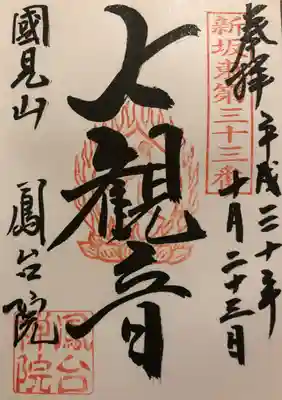 奉拝
平成三十年
十月二十三日
新坂東第三十三番
大観音
國見山　鳳台院
鳳台
禅院